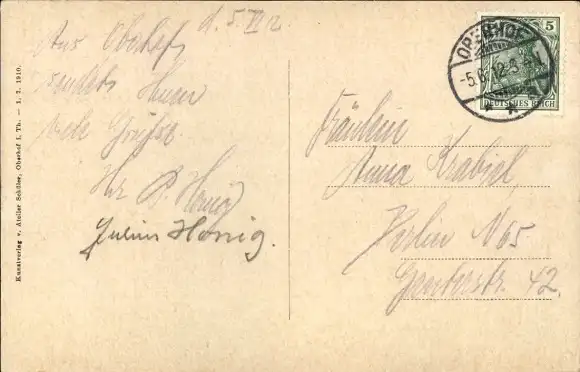 d. 5. VI 12
Aus Oberhof
sendet Ihnen
viele Grüße
Ihr P. Honig
Julius Honig.
Kunstverlag v. Atelier Schülze, Oberhof i. Th. — 1. 2. 1910.
OBERHOF
-5.6.12.
5
DEUTSCHES REICH
Fräulein
Anna Krabiel
Berlin N 65
Genterstr. 42.